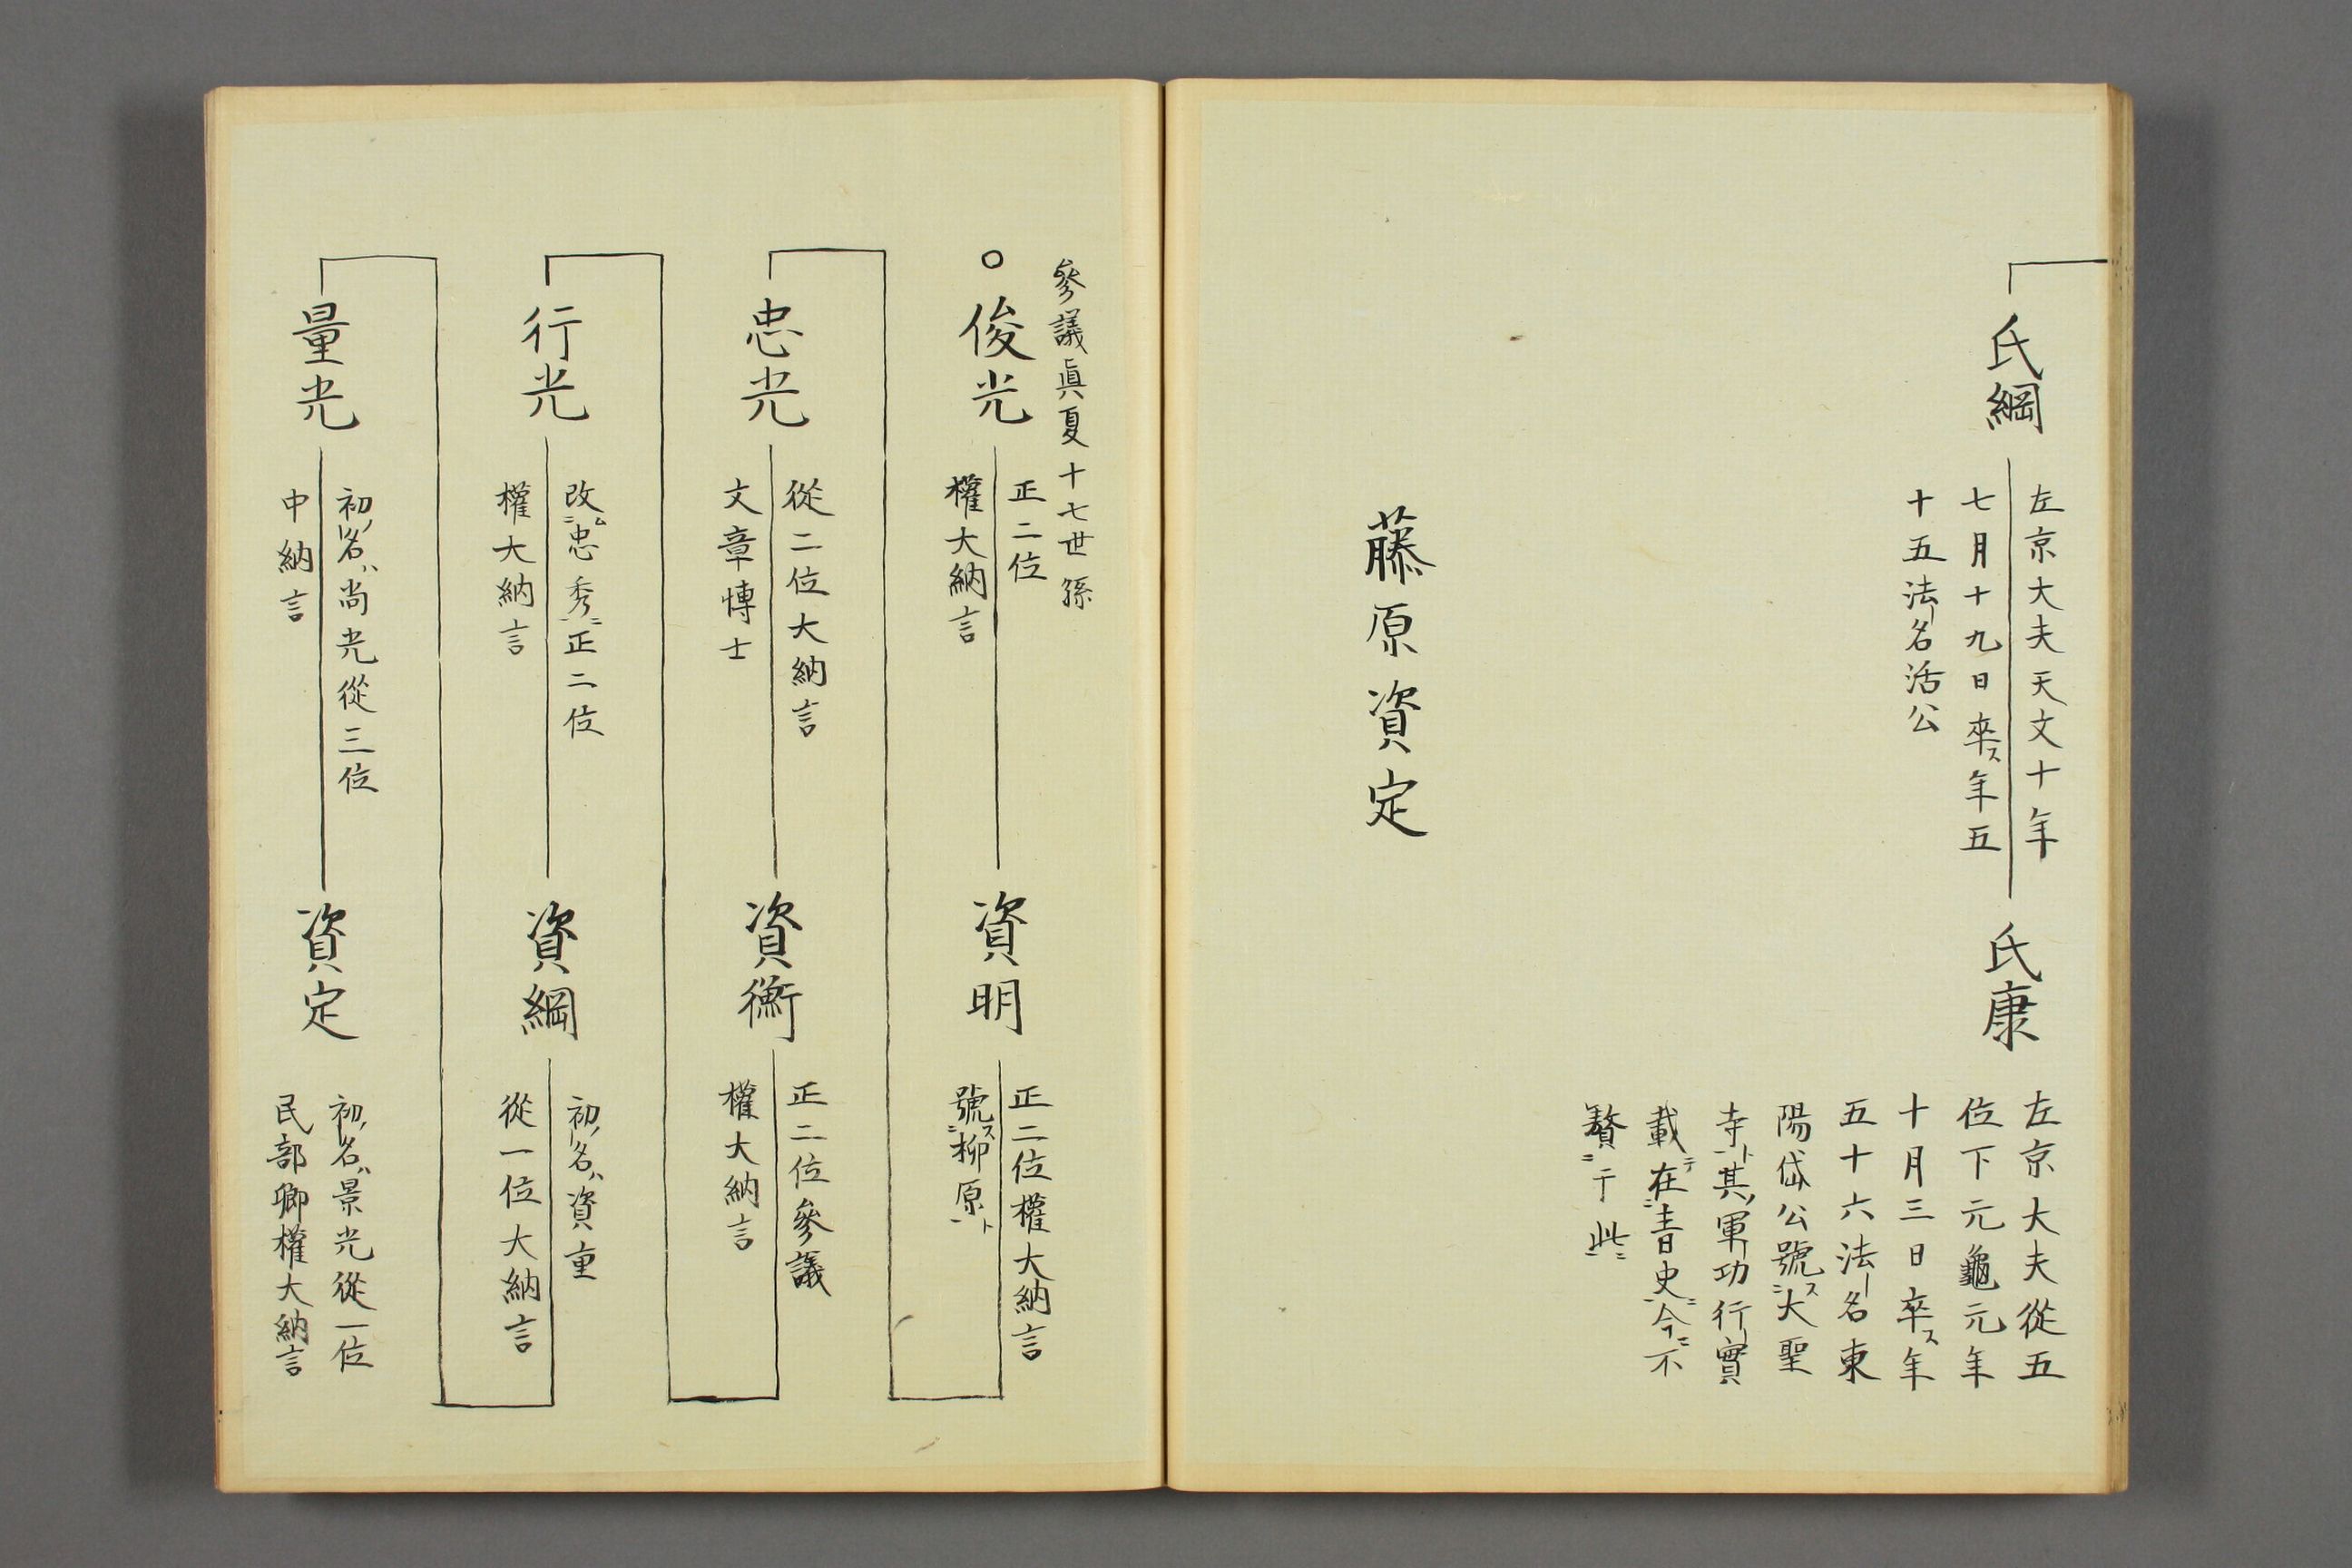 氏綱
左京大夫天文十年
七月十九日卒ス年五
十五法名活公
氏康
左京大夫從五
位下元龜元年
十月三日卒ス年
五十六法名東
陽岱公號ス大聖
寺ト其ノ軍功行實
載テ在青史ニ今不
贅于此ニ
藤原資定
參議眞夏十七世孫
俊光
正二位
權大納言
資明
正二位權大納言
號ス柳原ト
忠光
從二位大納言
文章博士
資衡
正二位參議
權大納言
行光
改ム忠秀ニ正二位
權大納言
資綱
初ノ名ハ資重
從一位大納言
量光
初ノ名ハ尚光從三位
中納言
資定
初ノ名ハ景光從一位
民部卿權大納言